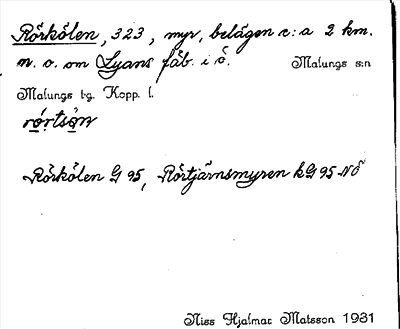 Rörkölen, 323, myr, belägen c:a 2 km.
n. o. om Lyans fäb. i ö. Malungs s:n
Malungs tg. Kopp. l.
Rörkölen G 95, Rörtjärnsmyren kG 95 NÖ
Niss Hjalmar Matsson 1931